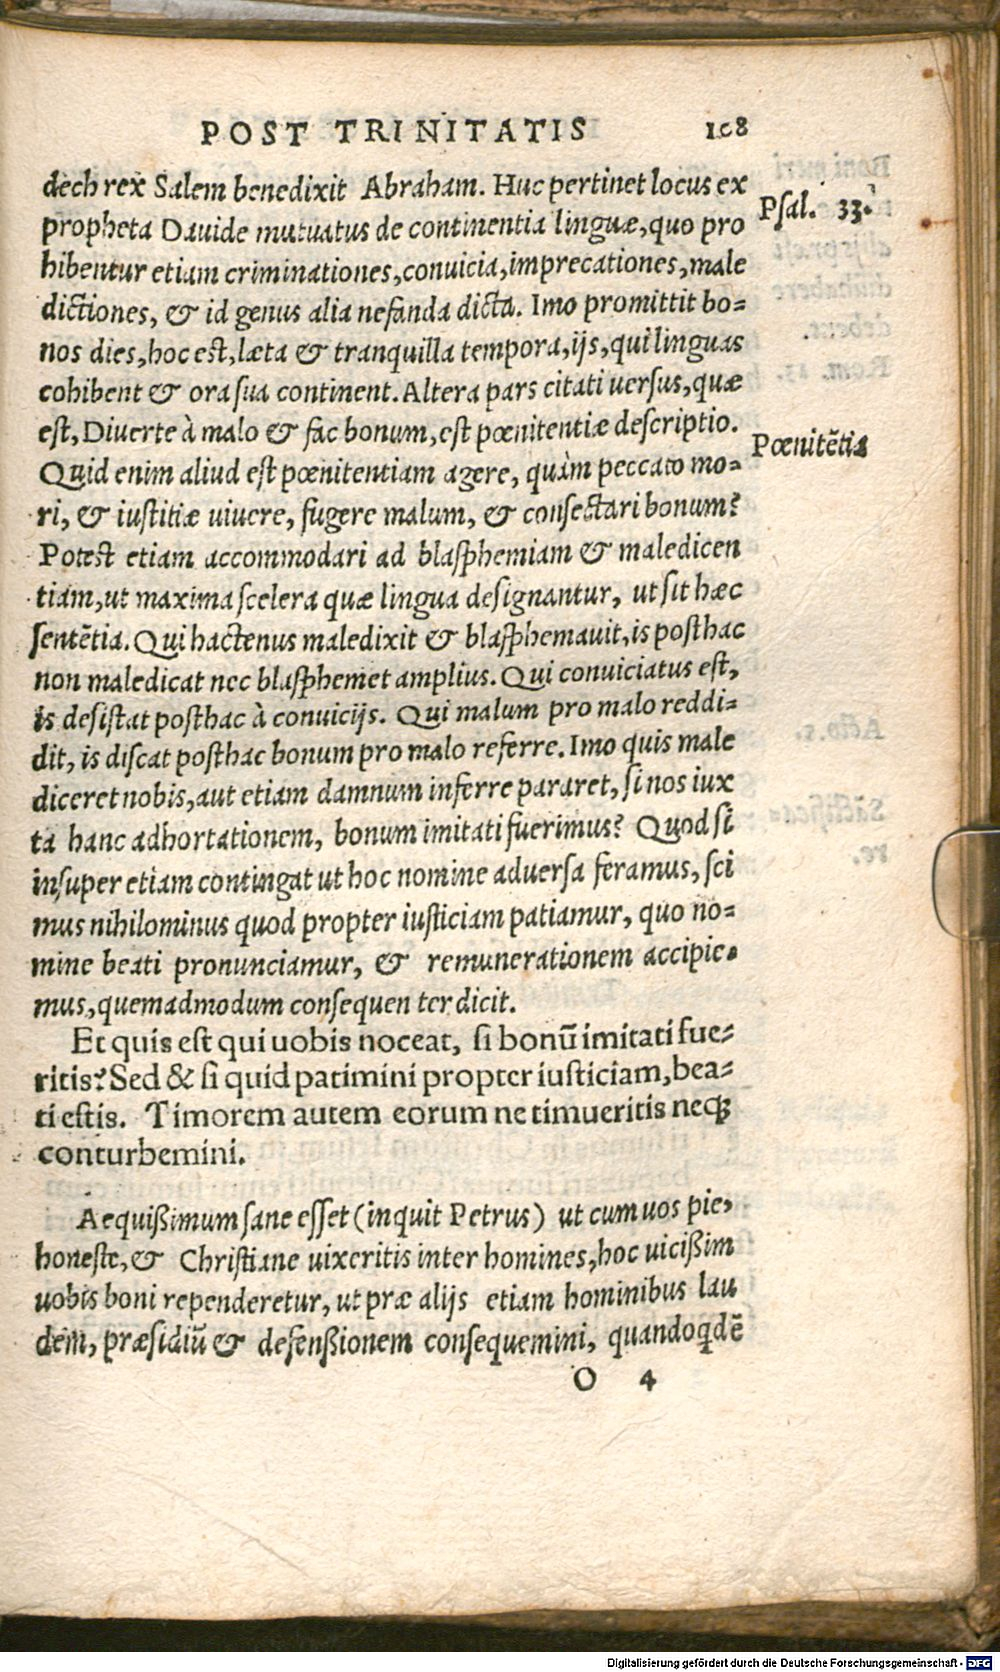 POST TRINITATIS 108
dech rex Salem benedixit Abraham. Huc pertinet locus ex
Psal. 33.
propheta Dauide mutuatus de continentia linguæ, quo pro
hibentur etiam criminationes, conuicia, imprecationes, male
dictiones, & id genus alia nefanda dicta. Imo promittit bo-
nos dies, hoc est, læta & tranquilla tempora, ijs, qui linguas
cohibent & ora sua continent. Altera pars citati uersus, quæ
est, Diuerte à malo & fac bonum, est pœnitentiæ descriptio.
Pœnitētia
Quid enim aliud est pœnitentiam agere, quàm peccato mo-
ri, & iustitiæ uiuere, fugere malum, & consectari bonum?
Potest etiam accommodari ad blasphemiam & maledicen
tiam, ut maxima scelera quæ lingua designantur, ut sit hæc
sentētia. Qui hactenus maledixit & blasphemauit, is posthac
non maledicat nec blasphemet amplius. Qui conuiciatus est,
is desistat posthac à conuicijs. Qui malum pro malo reddi-
dit, is discat posthac bonum pro malo referre. Imo quis male
diceret nobis, aut etiam damnum inferre pararet, si nos iux
ta hanc adhortationem, bonum imitati fuerimus? Quod si
insuper etiam contingat ut hoc nomine aduersa feramus, sci
mus nihilominus quod propter iusticiam patiamur, quo no-
mine beati pronunciamur, & remunerationem accipie-
mus, quemadmodum consequen ter dicit.
Et quis est qui uobis noceat, si bonū imitati fue-
ritis? Sed & si quid patimini propter iusticiam, bea-
ti estis. Timorem autem eorum ne timueritis neq;
conturbemini.
Aequißimum sane esset (inquit Petrus) ut cum uos pie,
honeste, & Christiane uixeritis inter homines, hoc uicißim
uobis boni rependeretur, ut præ alijs etiam hominibus lau
dem, præsidiū & defenßionem consequemini, quandoqdē
O 4
Digitalisierung gefördert durch die Deutsche Forschungsgemeinschaft - DFG